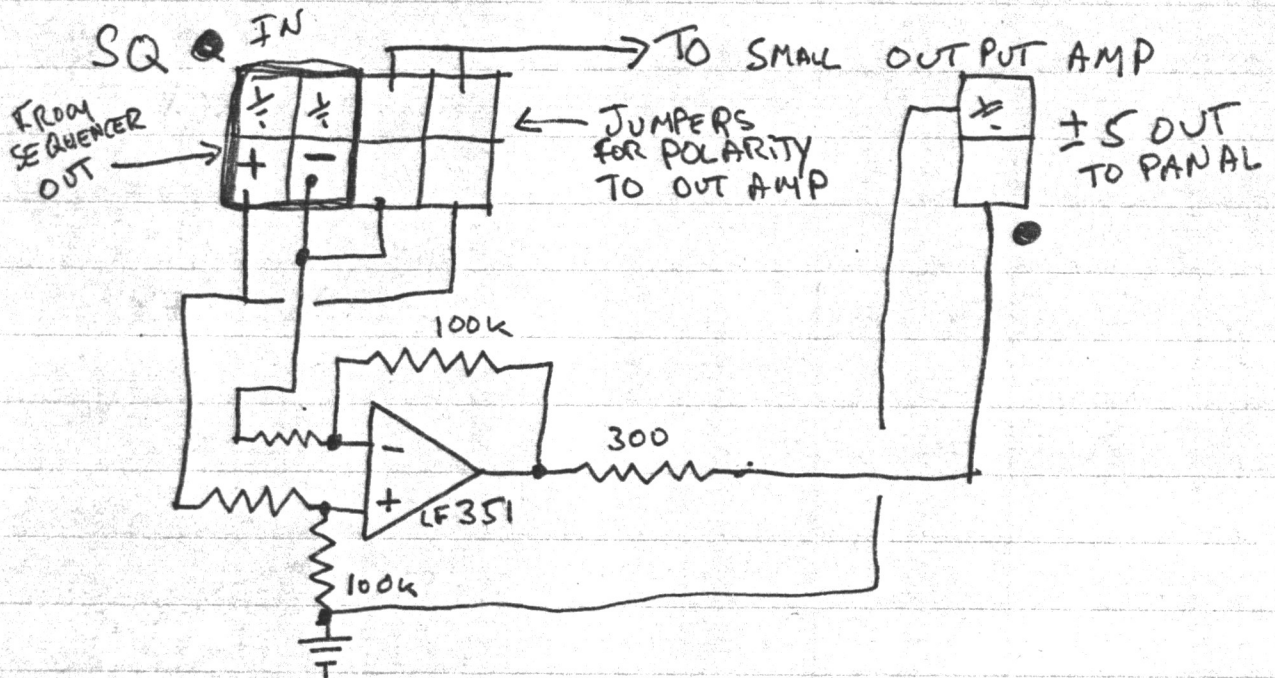 SQ IN
TO SMALL OUTPUT AMP
FROM
SEQUENCER
OUT
+ -
JUMPERS
FOR POLARITY
TO OUT AMP
± 5 OUT
TO PANAL
100K
300
-
+
LF351
100K